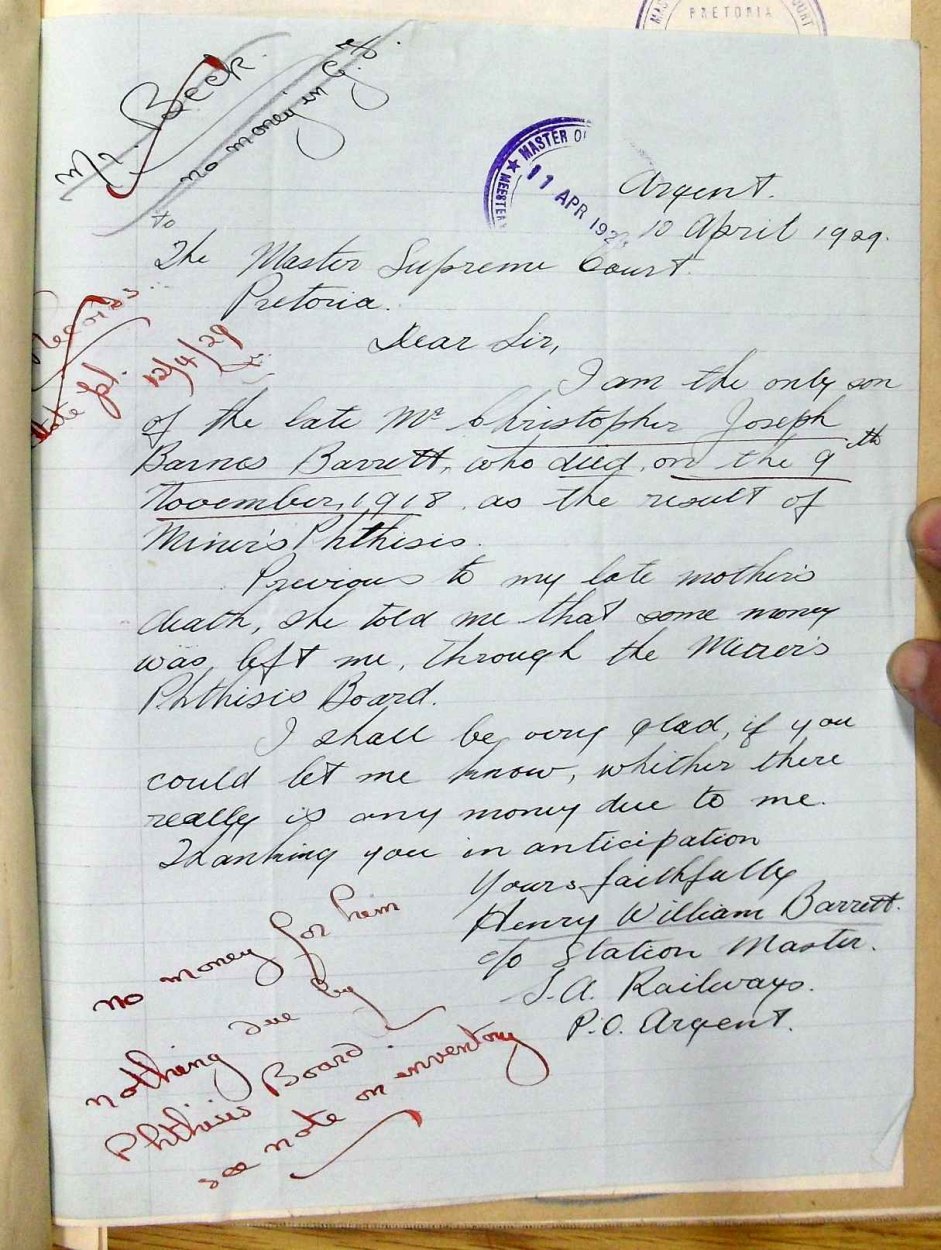 PRETORIA
Mr. Beck.
no money in G.F.
★ MASTER O
MEESTER
11 APR 192
Argent.
10 April 1929.
to
The Master Supreme Court.
Pretoria.
Dear Sir,
Records
12/4/29
I am the only son
of the late Mr Christopher Joseph
Barnes Barrett, who died on the 9th
November, 1918 as the result of
Miner's Phthisis.
Previous to my late mother's
death, she told me that some money
was left me, through the Miner's
Phthisis Board.
I shall be very glad, if you
could let me know, whether there
really is any money due to me.
Thanking you in anticipation
Yours faithfully
Henry William Barrett.
c/o Station Master.
S.A. Railways.
P.O. Argent.
no money for him
nothing due by
Phthisis Board.
see note on inventory